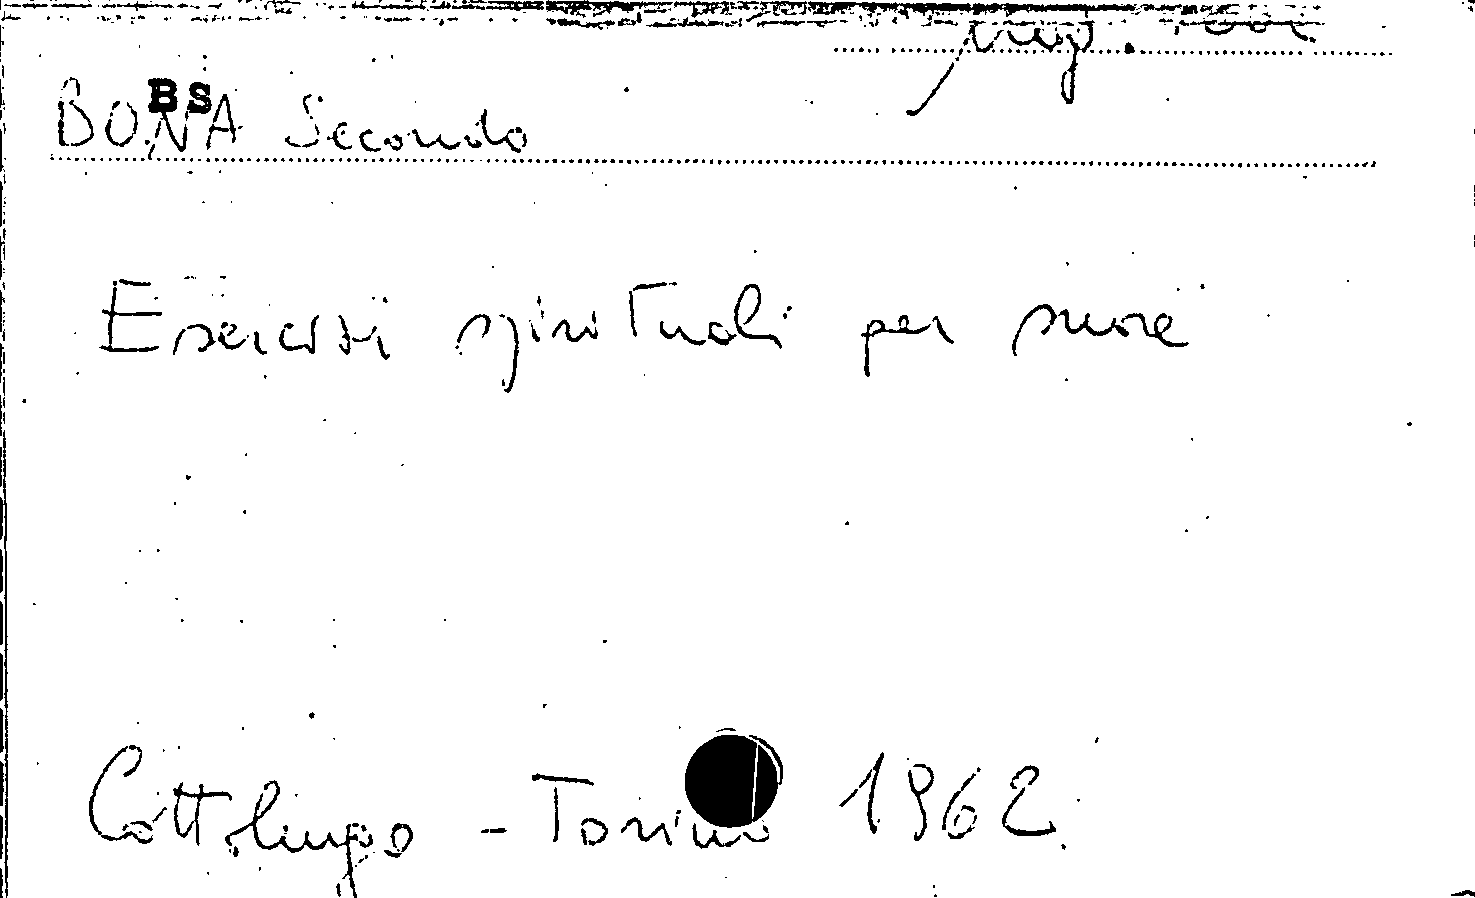 BS
BONA Secondo
Esercizi spirituali per suore
Cottolengo - Torino 1962